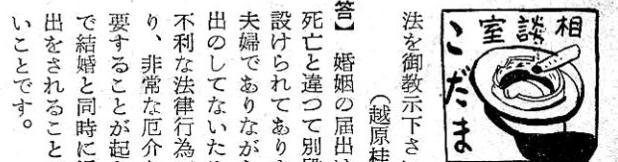 相談室
こだま
法を御教示下さ
(越原桂
答】 婚姻の届出は
死亡と違つて別段
設けられてありま
夫婦でありなが
出のしてないた
不利な法律行為
り、非常な厄介
要することが起
で結婚と同時に
出をされること
いことです。